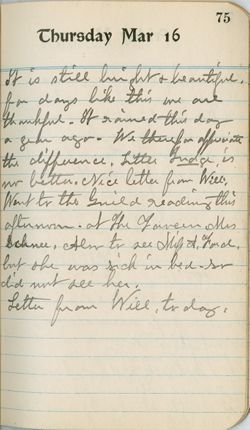 75
Thursday Mar 16
It is still bright & beautiful.
for days like this we are
thankful. It rained this day
a year ago. We therefor appreciate
the difference. Letter Judge, is
no better. Nice letter from Will,
Went to the Guild reading this
afternoon. at The Tavern Mrs
Schnee, Also to see Miss A. Ford.
but she was sick in bed - so
did not see her.
Letter from Will, to day.